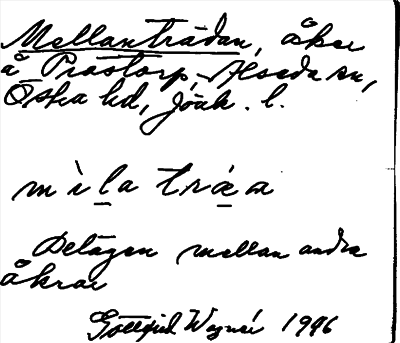 Mellanträdan, åker
å Prästorp, Alseda sn,
Östra hd, Jönk. l.
mìla træa
Belägen mellan andra
åkrar
Gottfrid Wagnér 1996